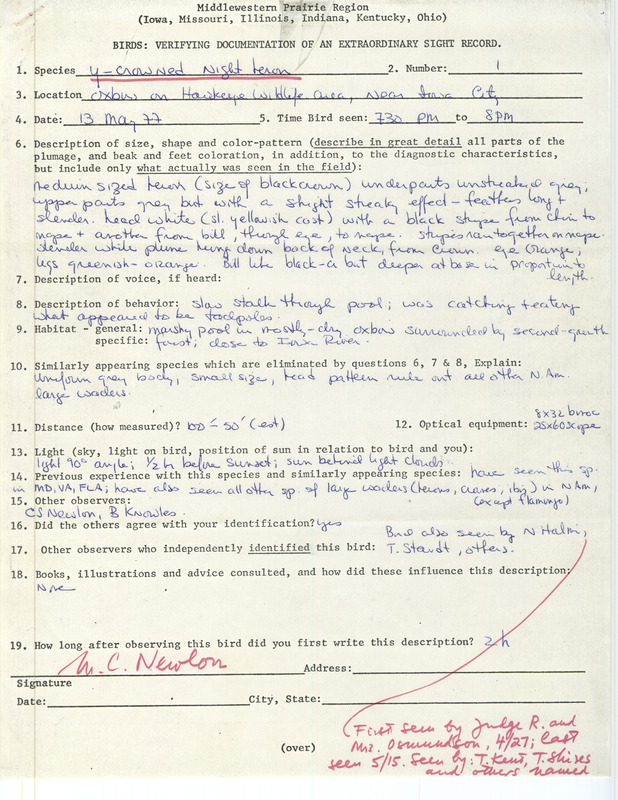 Middlewestern Prairie Region
(Iowa, Missouri, Illinois, Indiana, Kentucky, Ohio)
BIRDS: VERIFYING DOCUMENTATION OF AN EXTRAORDINARY SIGHT RECORD.
1. Species y-crowned Night heron 2. Number: 1
3. Location oxbow on Hawkeye Wildlife Area, near Iowa City
4. Date: 13 May 77 5. Time Bird seen: 730 pm to 8pm
6. Description of size, shape and color-pattern (describe in great detail all parts of the
plumage, and beak and feet coloration, in addition, to the diagnostic characteristics,
but include only what actually was seen in the field):
medium sized heron (size of blackcrown) underparts unstreaked grey,
upper parts grey but with a slight streaky effect - feathers long &
slender. head white (sl. yellowish cast) with a black stripe from chin to
nape + another from bill, through eye, to nape. stripes ran together on nape.
slender white plume hung down back of neck, from crown. eye orange,
legs greenish-orange. Bill like black-c but deeper at base in proportion to
length.
7. Description of voice, if heard:
8. Description of behavior: slow stalk through pool; was catching & eating
what appeared to be tadpoles.
9. Habitat - general: marshy pool in mostly-dry oxbow surrounded by second-growth
specific: forest; close to Iowa River.
10. Similarly appearing species which are eliminated by questions 6, 7 & 8, Explain:
Uniform grey body, small size, head pattern rule out all other N. Am.
large waders.
11. Distance (how measured)? 100 - 50' (est) 12. Optical equipment: 8x32 binoc
25x60 scope
13. Light (sky, light on bird, position of sun in relation to bird and you):
light 90° angle; 1/2 h before sunset; sun behind light clouds
14. Previous experience with this species and similarly appearing species: have seen this sp.
in MD, VA, FLA; have also seen all other sp. of large waders (herons, cranes, ibis) in N Am,
(except flamingo)
15. Other observers:
CS Newlon, B Knowles.
16. Did the others agree with your identification? yes
Bird also seen by N Halmi,
17. Other observers who independently identified this bird: T. Staudt, others.
18. Books, illustrations and advice consulted, and how did these influence this description:
None
19. How long after observing this bird did you first write this description? 2h
M. C. Newlon Address:
Signature
Date: City, State:
(over)
(First seen by Judge R. and
Mrs. Osmundson, 4/27; last
seen 5/15. Seen by: T. Kent, T. Shires
and others named